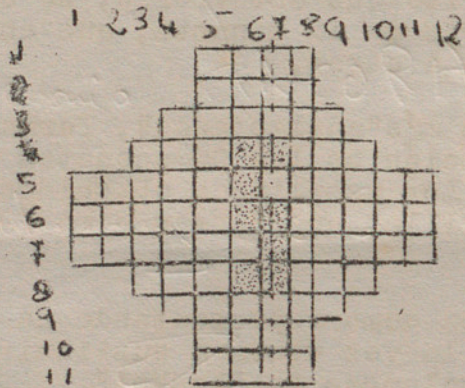 1 2 3 4 5 6 7 8 9 10 11 12
5
6
7
8
9
10
11